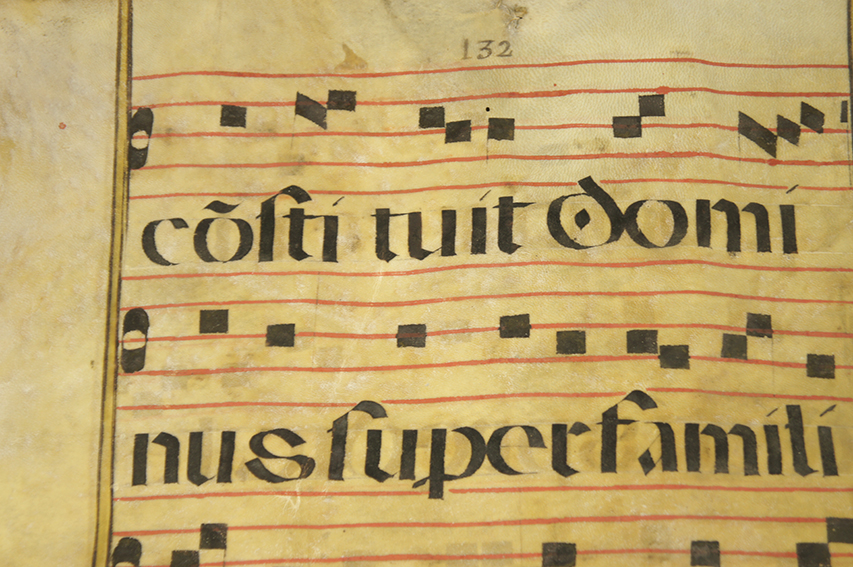 132
cõſti tuit domi
nus ſuper familí